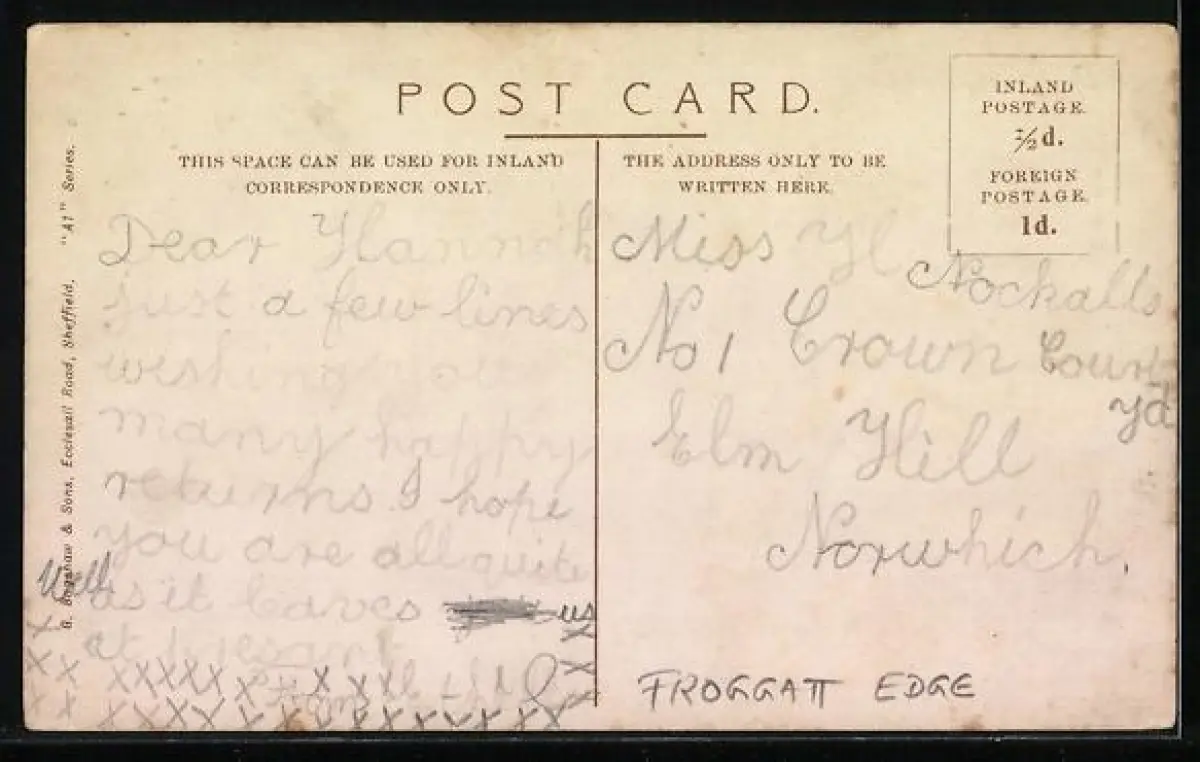 POST CARD.
THIS SPACE CAN BE USED FOR INLAND
CORRESPONDENCE ONLY.
THE ADDRESS ONLY TO BE
WRITTEN HERE.
INLAND
POSTAGE.
½d.
FOREIGN
POSTAGE.
1d.
"A1" Series.
& Sons, Ecclesall Road, Sheffield.
Dear Hannah
just a few lines
wishing you
many happy
returns. I hope
you are all quite
well as it leaves us
at present
XXXXX
From
Miss H Nockalls
No 1 Crown Court
yd
Elm Hill
Norwhich.
FROGGATT EDGE